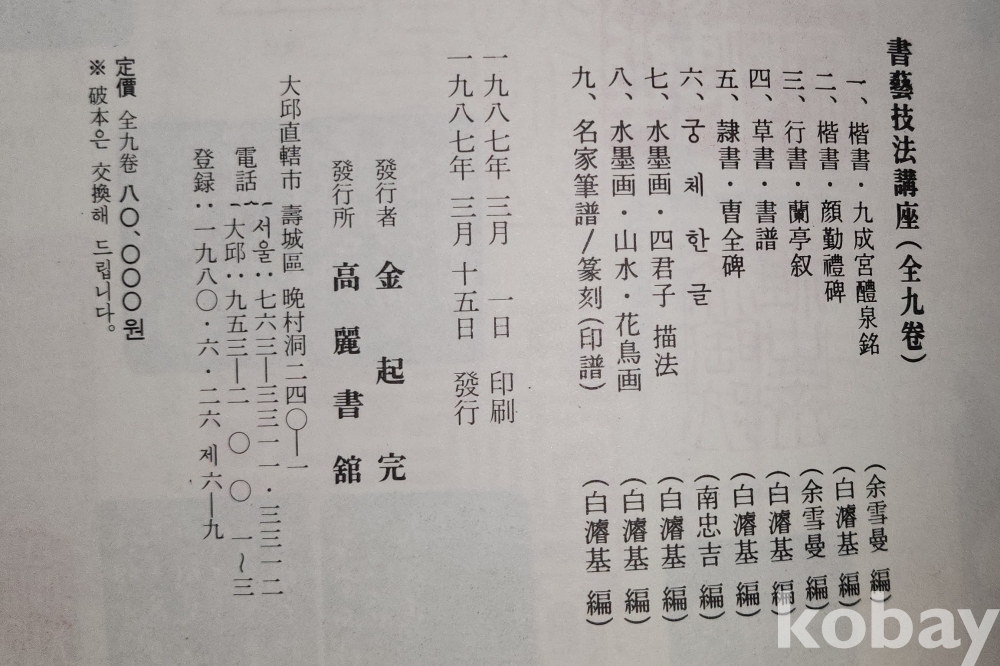 書藝技法講座(全九卷)
一、楷書·九成宮醴泉銘 (余雪曼 編)
二、楷書·顔勤禮碑 (白濬基 編)
三、行書·蘭亭叙 (余雪曼 編)
四、草書·書譜 (白濬基 編)
五、隷書·曺全碑 (白濬基 編)
六、궁체한글 (南忠吉 編)
七、水墨画·四君子 描法 (白濬基 編)
八、水墨画·山水·花鳥画 (白濬基 編)
九、名家筆譜/篆刻(印譜) (白濬基 編)
一九八七年 三月 一日 印刷
一九八七年 三月 十五日 發行
發行者 金起完
發行所 高麗書舘
大邱直轄市 壽城區 晩村洞 二四〇—一
電話 서울：七六三—三三一一·三三一二
大邱：九五三—二〇〇一～三
登録：一九八〇·六·二六 제六—九
定價 全九卷 八〇,〇〇〇원
※ 破本은 交換해 드립니다。
kobay